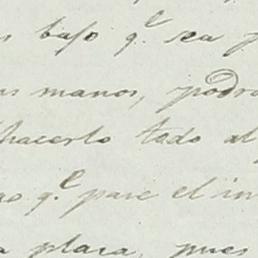 bajo q.e sea
manos, podrá
hacerlo todo al
q.e pare el in
plaza, pues